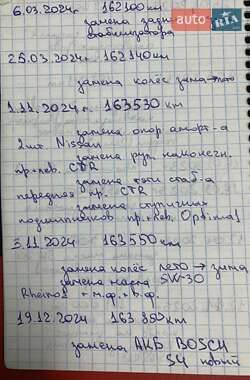 AUTO RIA
6.03.2024г 162100 км
замена задн
стабилизатора
25.03.2024г. 162140 км
замена колес зима→лето
1.11.2024г. 163530 км
замена опор аморт-а
2шт. Nissan
замена рул. наконечн.
пр.+лев. CTR
замена тяги стаб-а
передняя пр. CTR
замена ступичных
подшипников пр.+лев. Optimal
3.11.2024 163550 км
замена колес лето → зима
замена масла 5W-30
+ м.ф.+в.ф.
19.12.2024 163 850 км
замена АКБ BOSCH
S4 новый